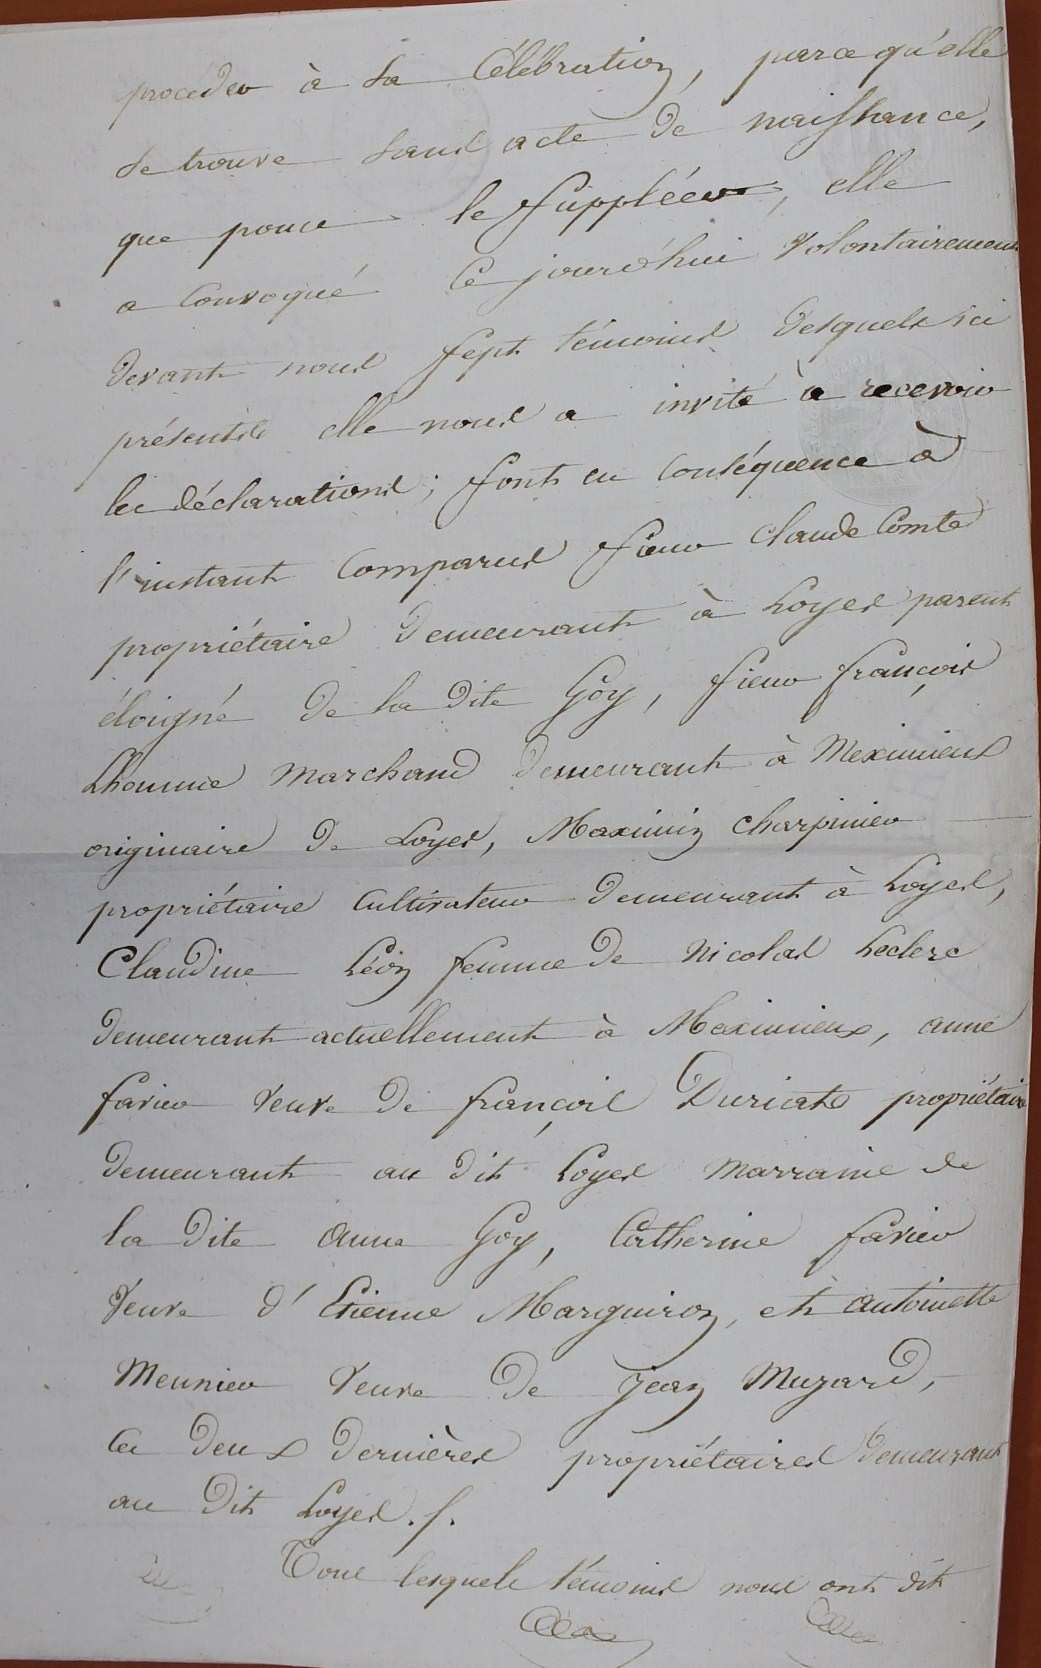 procéder à sa Célébration, parce qu'elle
se trouve sans acte de naissance,
que pour le suppléer, elle
a Convoqué Ce jourd'hui Volontairement
devant nous sept témoins desquels ici
présents elle nous a invité à recevoir
les déclarations; sont en Conséquence à
l'instant Comparus sieur Claude Comte
propriétaire demeurant à Loyes parent
éloigné de la dite Goy, sieur françois
Lhomme Marchand demeurant à Meximieux
originaire de Loyes, Maximin Charpinier
propriétaire Cultivateur demeurant à Loyes,
Claudine Léon femme de Nicolas Leclerc
demeurant actuellement à Meximieux, anne
favier Veuve de françois Duriat propriétaire
demeurant au dit Loyes Marraine de
la dite anne Goy, Catherine favier
Veuve d'Etienne Marguiron, et antoinette
Meunier Veuve de Jean Muzard,
Ces deux dernières propriétaires demeurant
au dit Loyes./.
Tous lesquels témoins nous ont dit